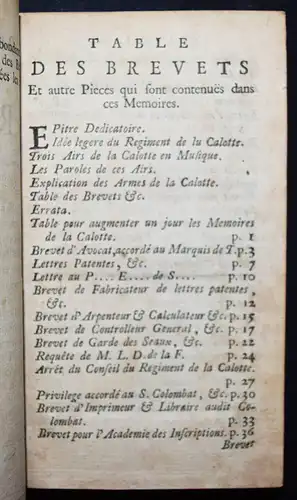 bondan
des R
ées le
TABLE
DES BREVETS
Et autre Pieces qui sont contenuës dans
ces Memoires.
EPitre Dedicatoire.
Idée legere du Regiment de la Calotte.
Trois Airs de la Calotte en Musique.
Les Paroles de ces Airs.
Explication des Armes de la Calotte.
Table des Brevets &c.
Errata.
Table pour augmenter un jour les Memoires
de la Calotte. p. 1
Brevet d'Avocat, accordé au Marquis de T. p. 3
Lettres Patentes, &c. p. 7
Lettre au P.... E.... de S.... p. 10
Brevet de Fabricateur de lettres patentes,
&c. p. 12
Brevet d'Arpenteur & Calculateur &c. p. 15
Brevet de Controlleur General, &c. p. 17
Brevet de Garde des Seaux, &c. p. 22
Requête de M. L. D. de la F. p. 24
Arrêt du Conseil du Regiment de la Calotte.
p. 27
Privilege accordé au S. Colombat, &c. p. 30
Brevet d'Imprimeur & Libraire audit Co-
lombat. p. 33
Brevet pour l'Academie des Inscriptions. p. 36
Brevet